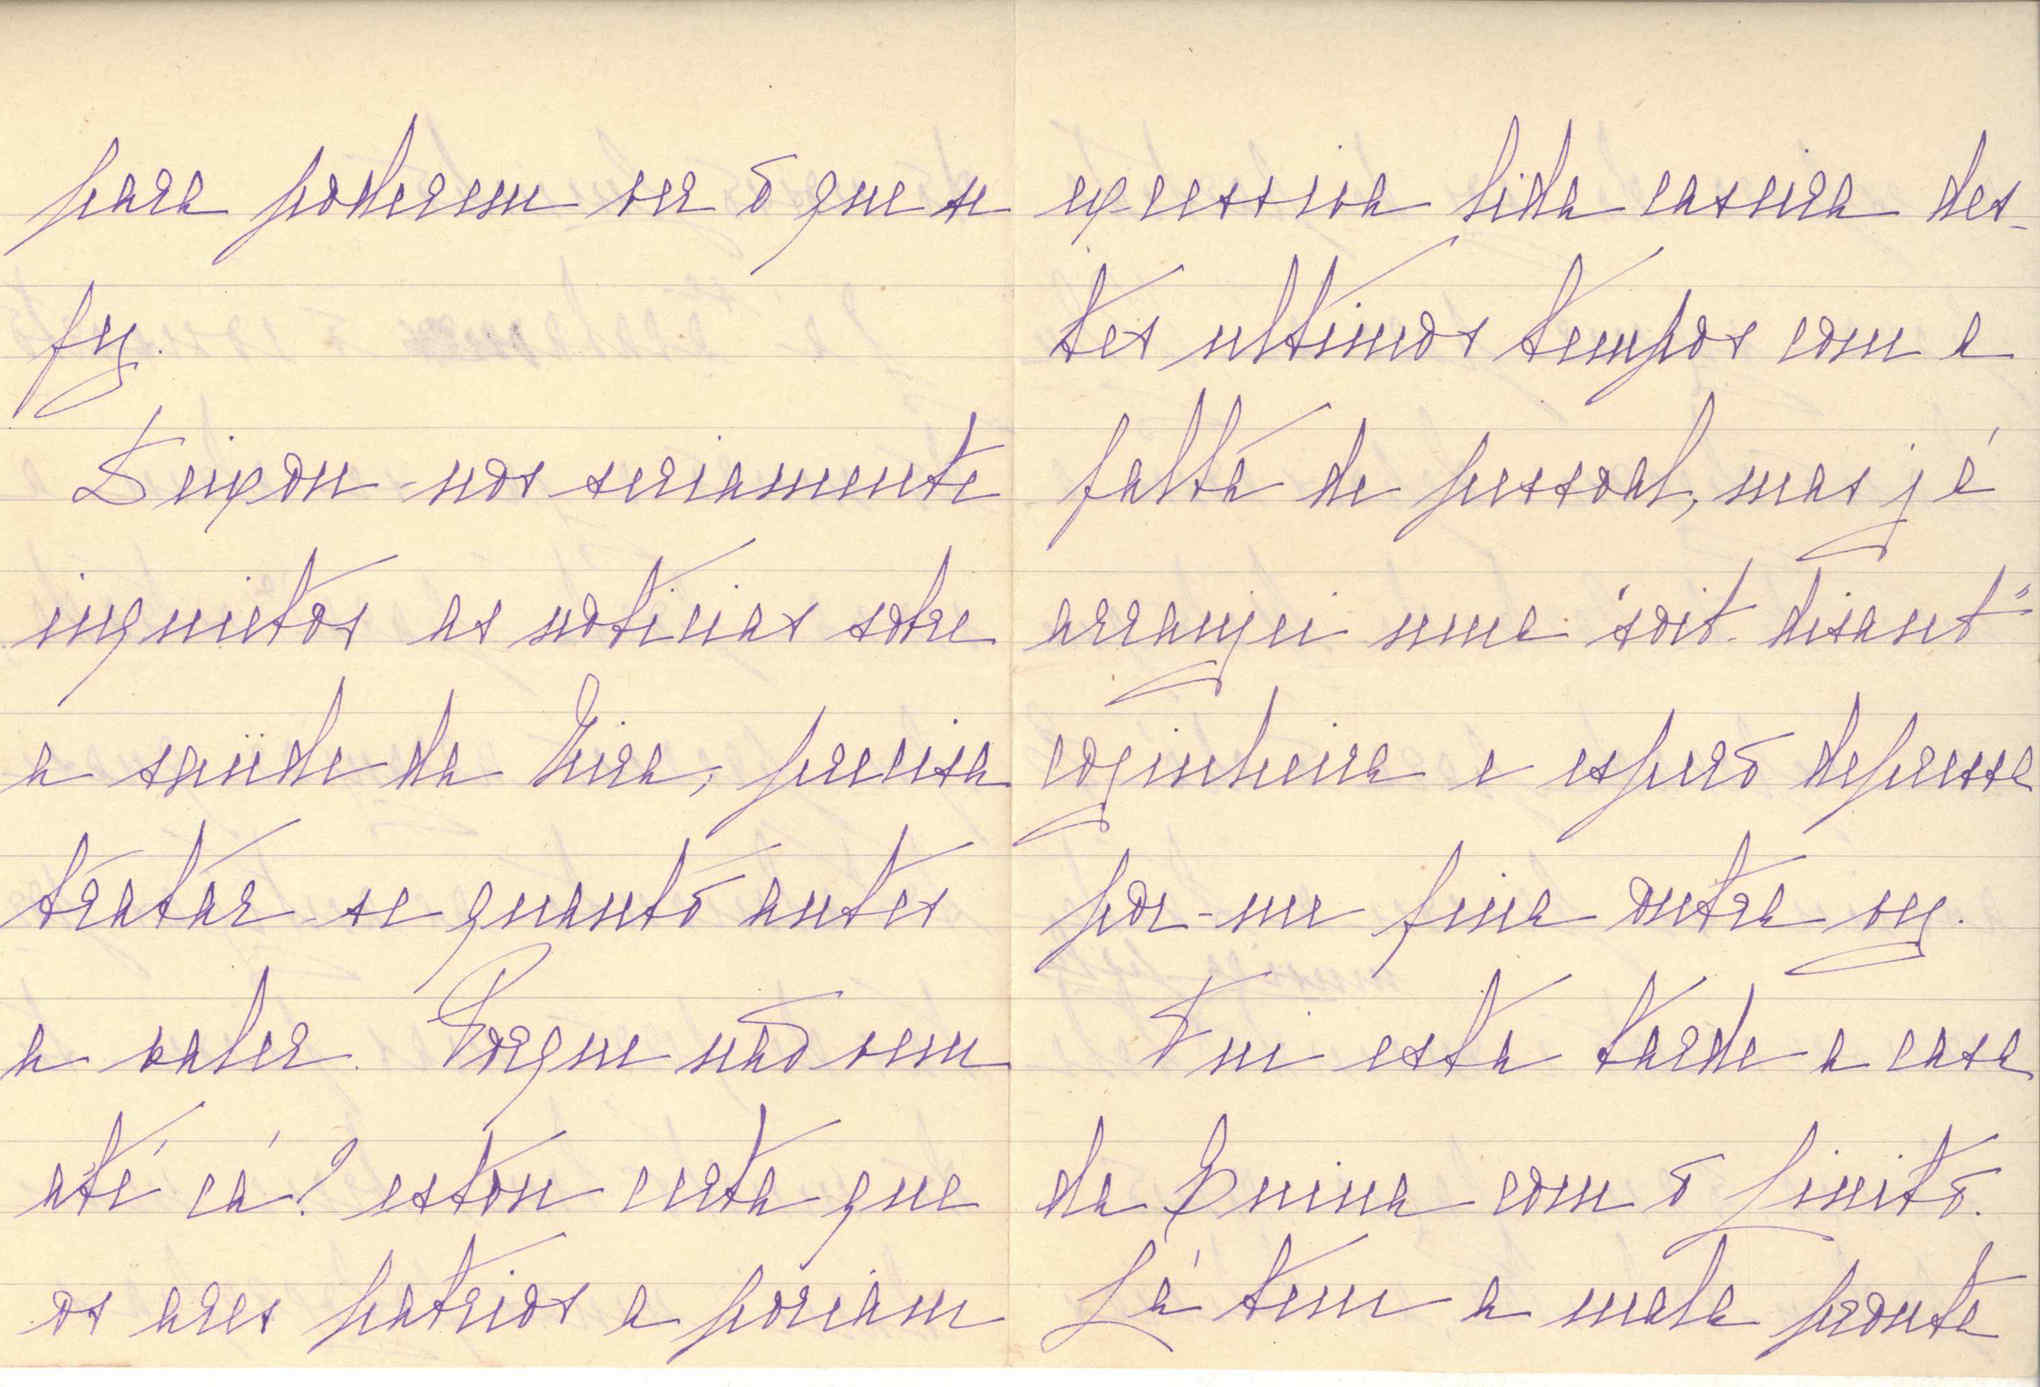 para poderem ver o que se
fez.
Deixou-nos seriamente
inquietos as noticias sobre
a saúde da Zira, precisa
tratar-se quanto antes
a valer. Porque não vem
até cá? estou certa que
os ares patrios a poriam
excessiva lida caseira des-
tes ultimos tempos com a
falta de pessoal, mas já
arranjei uma "soit-disant"
cozinheira e espero depressa
pôr-me fina outra vez.
Fui esta tarde a casa
da Enina com o Linito.
Lá tem a mala pronta